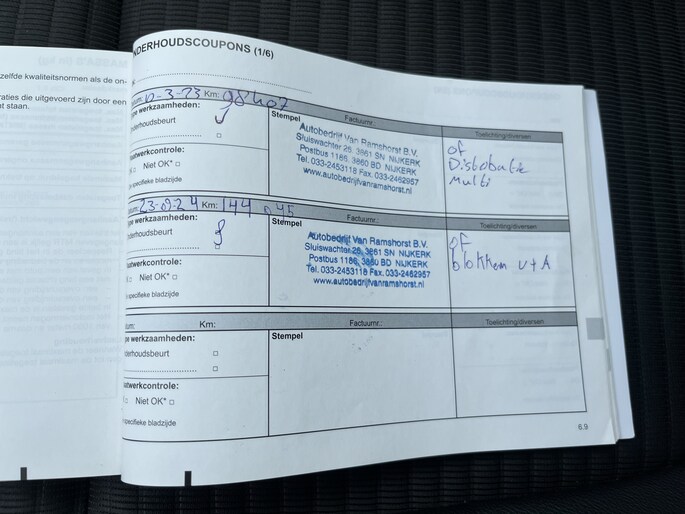 zelfde kwaliteitsnormen als de on-
raties die uitgevoerd zijn door een
t staan.
NDERHOUDSCOUPONS (1/6)
atum: 10-3-23 Km: 98407
Factuurnr.:
Toelichting/diversen
pe werkzaamheden:
nderhoudsbeurt
Stempel
Autobedrijf Van Ramshorst B.V.
Sluiswachter 26, 3861 SN NIJKERK
Postbus 1186, 3860 BD NIJKERK
Tel. 033-2453118 Fax. 033-2462957
www.autobedrijfvanramshorst.nl
of
Distributie
Multi
aatwerkcontrole:
Niet OK*
specifieke bladzijde
tum: 23-09-24 Km: 144 045
Factuurnr.:
Toelichting/diversen
pe werkzaamheden:
nderhoudsbeurt
Stempel
Autobedrijf Van Ramshorst B.V.
Sluiswachter 26, 3861 SN NIJKERK
Postbus 1186, 3860 BD NIJKERK
Tel. 033-2453118 Fax. 033-2462957
www.autobedrijfvanramshorst.nl
of
blokken v+A
aatwerkcontrole:
Niet OK*
specifieke bladzijde
tum:
Km:
Factuurnr.:
Toelichting/diversen
pe werkzaamheden:
nderhoudsbeurt
Stempel
aatwerkcontrole:
Niet OK*
specifieke bladzijde
6.9